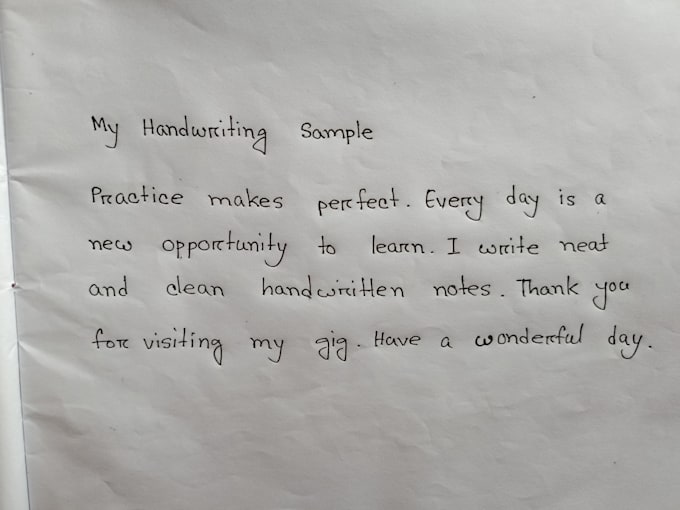 My Handwriting Sample
Practice makes perfect. Every day is a
new opportunity to learn. I write neat
and clean handwritten notes. Thank you
for visiting my gig. Have a wonderful day.